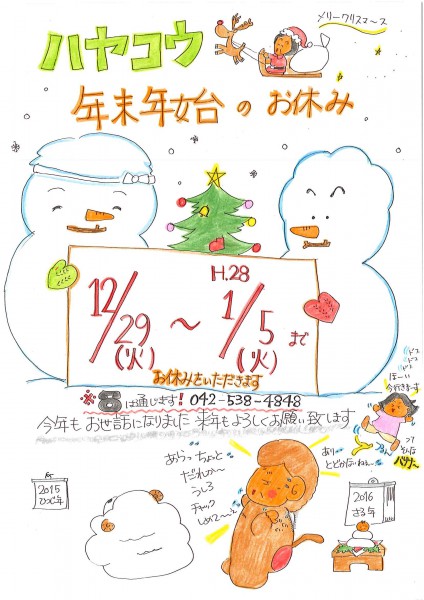 メリークリスマース
ハヤコウ
年末年始のお休み
12/29(火)～H.28 1/5(火)まで
お休みをいただきます
※☎は通じます! 042-538-4848
今年もお世話になりました 来年もよろしくお願い致します
ドスドスドス
ほーい
今行きまーす
って
そんな
バナナ～
2015
ひつじ年
あらっちょっと
だれか～
うしろ
チャック
しめて～え
あり～
とどかないねぇ～
2016
さる年